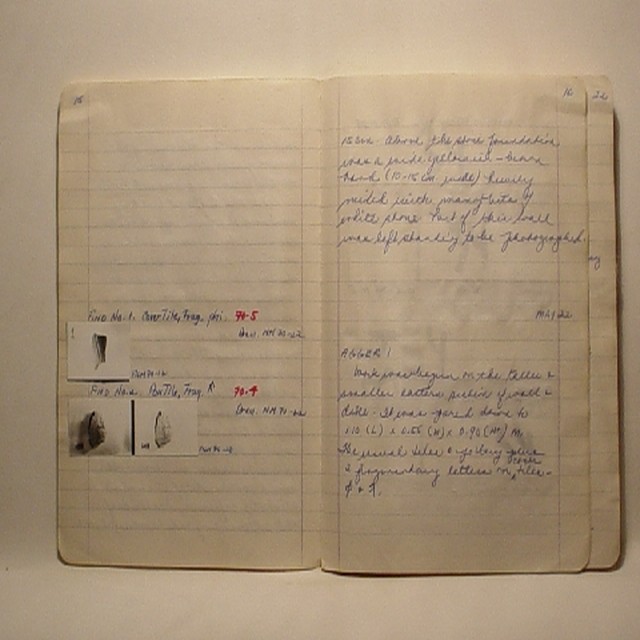 15
FIND No. 1. Cover Tile, Frag. φρ. 70-5
Draw. NM 70-
FIND No. 2. Pan Tile, Frag. 70.4
Draw. NM 70-
16
22
15 cm above the stone foundation
was a wide yellowish-brown
band (10-15 cm wide) heavily
mixed with many bits of
white stone. Part of this wall
was left standing to be photographed.
MAY 22
Work was begun on the taller &
smaller eastern section of wall 2
It was pared down to
1.10 (L) x 0.55 (W) x 0.90 (H) M.
The usual tiles & pottery plus
2 fragmentary letters on cover tiles -